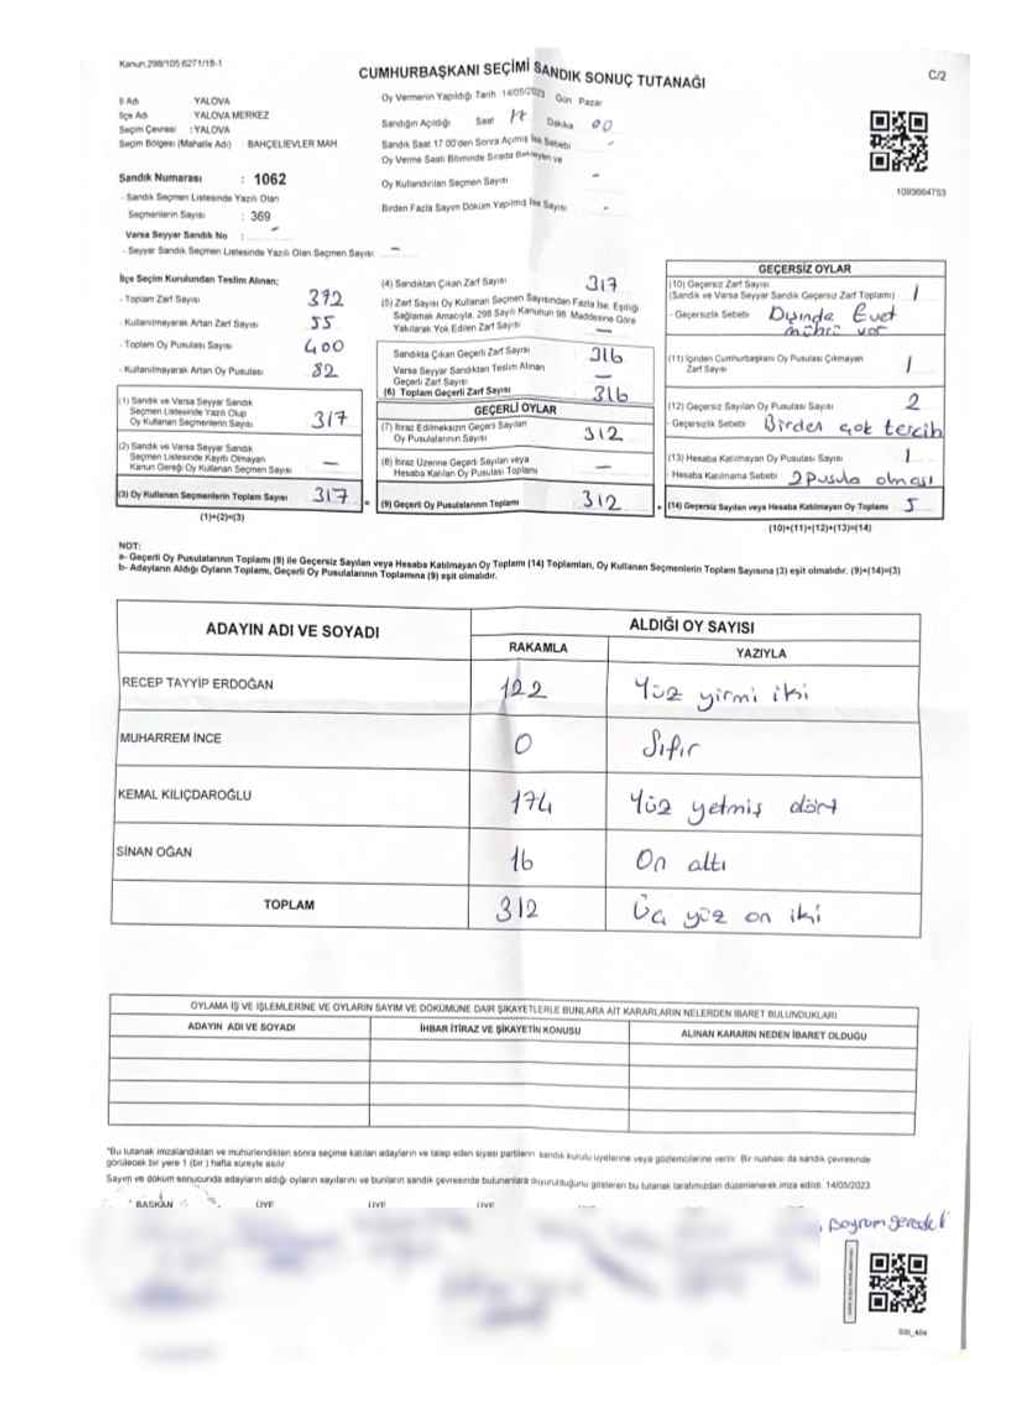 Kanun 298/105 6271/18-1
CUMHURBAŞKANI SEÇİMİ SANDIK SONUÇ TUTANAĞI
C/2
İl Adı YALOVA
İlçe Adı YALOVA MERKEZ
Seçim Çevresi : YALOVA
Seçim Bölgesi (Mahalle Adı) BAHÇELİEVLER MAH
Sandık Numarası : 1062
- Sandık Seçmen Listesinde Yazılı Olan
Seçmenlerin Sayısı : 369
Varsa Seyyar Sandık No : -
- Seyyar Sandık Seçmen Listesinde Yazılı Olan Seçmen Sayısı: -
Oy Vermenin Yapıldığı Tarih 14/05/2023 Gün Pazar
Sandığın Açıldığı Saat 17 Dakika 00
Sandık Saat 17 00'den Sonra Açılmış İse Sebebi -
Oy Verme Saati Bitiminde Sırada Bekleyen ve
Oy Kullandırılan Seçmen Sayısı -
Birden Fazla Sayım Döküm Yapılmış İse Sayısı -
1093664753
İlçe Seçim Kurulundan Teslim Alınan:
- Toplam Zarf Sayısı 392
- Kullanılmayarak Artan Zarf Sayısı 55
- Toplam Oy Pusulası Sayısı 400
- Kullanılmayarak Artan Oy Pusulası 82
(1) Sandık ve Varsa Seyyar Sandık
Seçmen Listesinde Yazılı Olup
Oy Kullanan Seçmenlerin Sayısı 317
(2) Sandık ve Varsa Seyyar Sandık
Seçmen Listesinde Kayıtlı Olmayan
Kanun Gereği Oy Kullanan Seçmen Sayısı -
(3) Oy Kullanan Seçmenlerin Toplam Sayısı 317
(1)+(2)=(3)
(4) Sandıktan Çıkan Zarf Sayısı 317
(5) Zarf Sayısı Oy Kullanan Seçmen Sayısından Fazla İse, Eşitliği
Sağlamak Amacıyla, 298 Sayılı Kanunun 98. Maddesine Göre
Yakılarak Yok Edilen Zarf Sayısı -
Sandıkta Çıkan Geçerli Zarf Sayısı 316
Varsa Seyyar Sandıktan Teslim Alınan
Geçerli Zarf Sayısı -
(6) Toplam Geçerli Zarf Sayısı 316
GEÇERLİ OYLAR
(7) İtiraz Edilmeksizin Geçerli Sayılan
Oy Pusulalarının Sayısı 312
(8) İtiraz Üzerine Geçerli Sayılan veya
Hesaba Katılan Oy Pusulası Toplamı -
(9) Geçerli Oy Pusulalarının Toplamı 312
GEÇERSİZ OYLAR
(10) Geçersiz Zarf Sayısı
(Sandık ve Varsa Seyyar Sandık Geçersiz Zarf Toplamı) 1
- Geçersizlik Sebebi Dışında Evet
mührü var
(11) İçinden Cumhurbaşkanı Oy Pusulası Çıkmayan
Zarf Sayısı 1
(12) Geçersiz Sayılan Oy Pusulası Sayısı 2
- Geçersizlik Sebebi Birden çok tercih
(13) Hesaba Katılmayan Oy Pusulası Sayısı 1
Hesaba Katılmama Sebebi 2 pusula olması
(14) Geçersiz Sayılan veya Hesaba Katılmayan Oy Toplamı 5
(10)+(11)+(12)+(13)=(14)
NOT:
a- Geçerli Oy Pusulalarının Toplamı (9) ile Geçersiz Sayılan veya Hesaba Katılmayan Oy Toplamı (14) Toplamları, Oy Kullanan Seçmenlerin Toplam Sayısına (3) eşit olmalıdır. (9)+(14)=(3)
b- Adayların Aldığı Oyların Toplamı, Geçerli Oy Pusulalarının Toplamına (9) eşit olmalıdır.
ADAYIN ADI VE SOYADI
ALDIĞI OY SAYISI
RAKAMLA YAZIYLA
RECEP TAYYİP ERDOĞAN 122 Yüz yirmi iki
MUHARREM İNCE 0 Sıfır
KEMAL KILIÇDAROĞLU 174 Yüz yetmiş dört
SİNAN OĞAN 16 On altı
TOPLAM 312 Üç yüz on iki
OYLAMA İŞ VE İŞLEMLERİNE VE OYLARIN SAYIM VE DÖKÜMÜNE DAİR ŞİKAYETLERLE BUNLARA AİT KARARLARIN NELERDEN İBARET BULUNDUKLARI
ADAYIN ADI VE SOYADI İHBAR İTİRAZ VE ŞİKAYETİN KONUSU ALINAN KARARIN NEDEN İBARET OLDUĞU
*Bu tutanak imzalandıktan ve mühürlendikten sonra seçime katılan adayların ve talep eden siyasi partilerin sandık kurulu üyelerine veya gözlemcilerine verilir. Bir nüshası da sandık çevresinde
görülecek bir yere 1 (bir) hafta süreyle asılır
Sayım ve döküm sonucunda adayların aldığı oyların sayılarını ve bunların sandık çevresinde bulunanlara duyurulduğunu gösteren bu tutanak tarafımızdan düzenlenerek imza edildi. 14/05/2023
BAŞKAN ÜYE ÜYE ÜYE